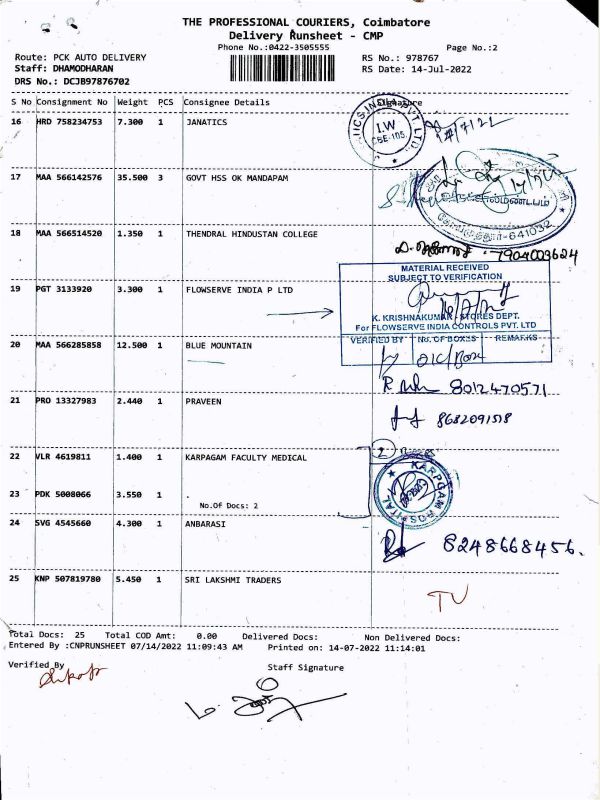 THE PROFESSIONAL COURIERS, Coimbatore
Delivery Runsheet - CMP
Phone No.:0422-3505555
Page No.:2
Route: PCK AUTO DELIVERY
RS No.: 978767
Staff: DHAMODHARAN
RS Date: 14-Jul-2022
DRS No.: DCJB97876702
S No Consignment No Weight PCS Consignee Details Signature
16 HRD 758234753 7.300 1 JANATICS
I.W
CBE-105
17 MAA 566142576 35.500 3 GOVT HSS OK MANDAPAM
ஒத்தக்கால்மண்டபம்
கோயமுத்தூர்-641032
18 MAA 566514520 1.350 1 THENDRAL HINDUSTAN COLLEGE
7904003624
19 PGT 3133920 3.300 1 FLOWSERVE INDIA P LTD
MATERIAL RECEIVED
SUBJECT TO VERIFICATION
K. KRISHNAKUMAR STORES DEPT.
For FLOWSERVE INDIA CONTROLS PVT. LTD
VERIFIED BY No. OF BOXES REMARKS
20 MAA 566285858 12.500 1 BLUE MOUNTAIN
8012470571
21 PRO 13327983 2.440 1 PRAVEEN
8682091518
22 VLR 4619811 1.400 1 KARPAGAM FACULTY MEDICAL
2
KARPGAM HOSPITAL
23 PDK 5008066 3.550 1 .
No.Of Docs: 2
24 SVG 4545660 4.300 1 ANBARASI
8248668456.
25 KNP 507819780 5.450 1 SRI LAKSHMI TRADERS
TV
Total Docs: 25 Total COD Amt: 0.00 Delivered Docs: Non Delivered Docs:
Entered By :CNPRUNSHEET 07/14/2022 11:09:43 AM Printed on: 14-07-2022 11:14:01
Verified By
Staff Signature